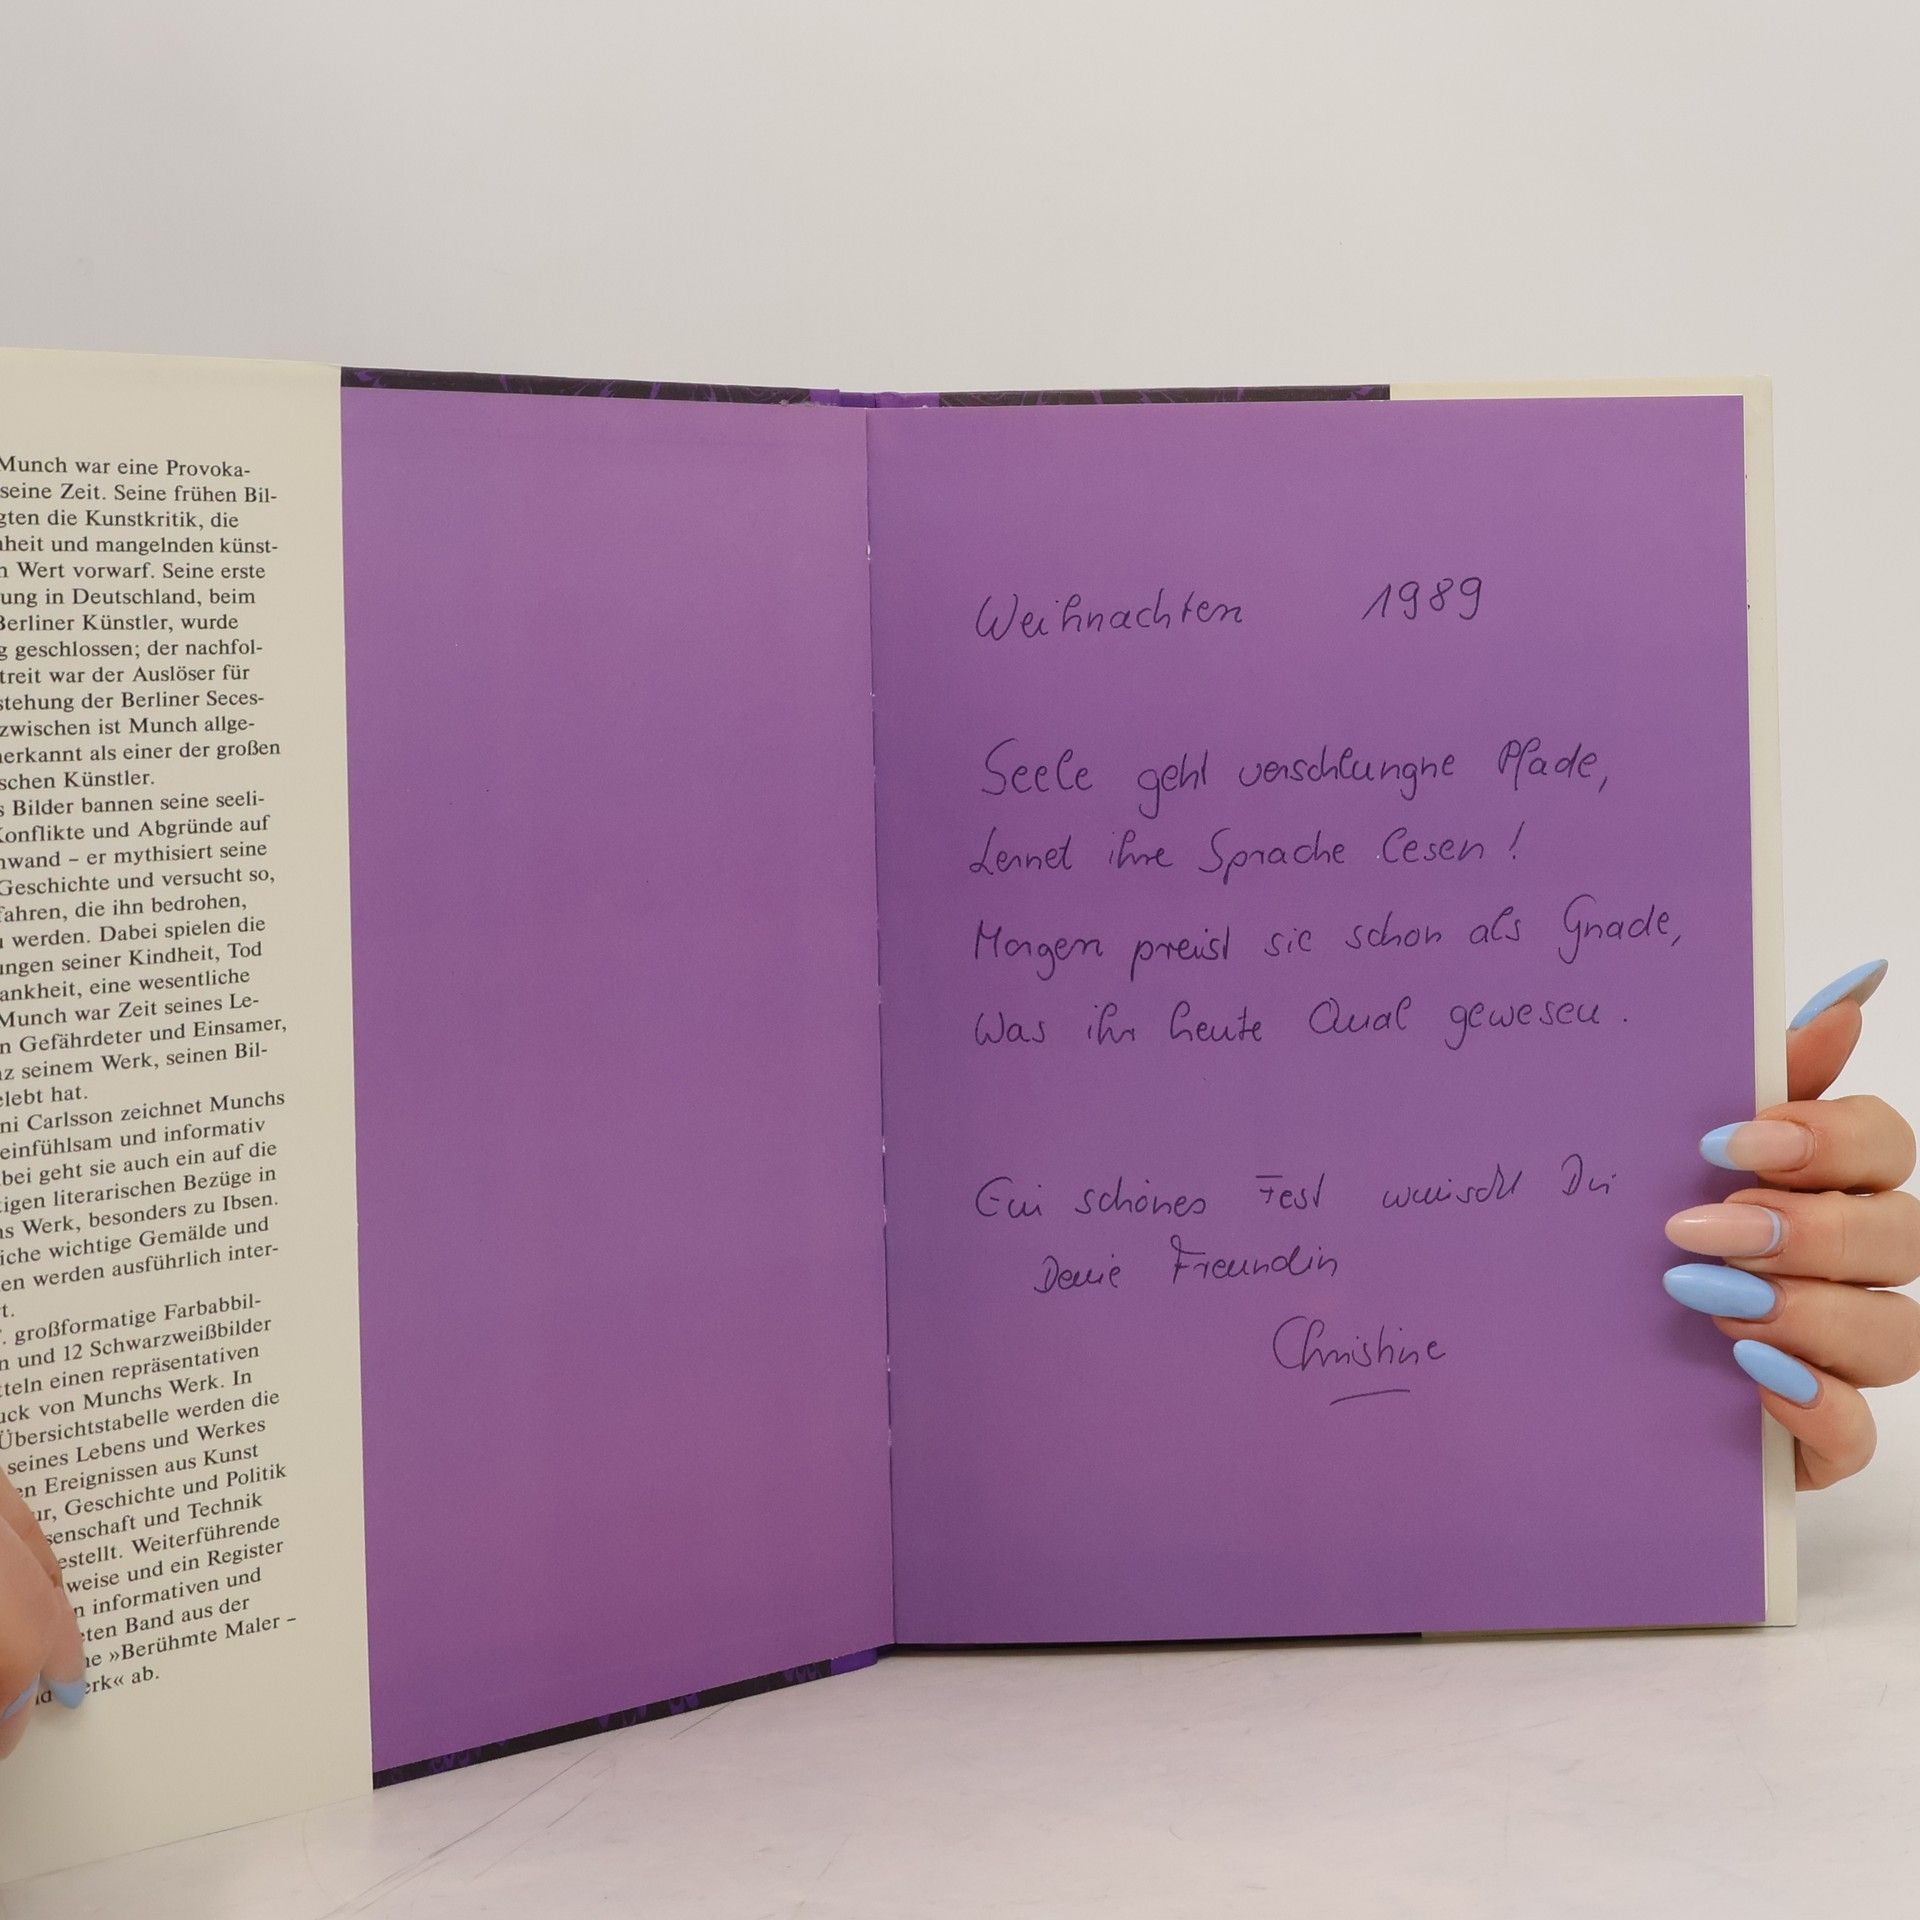 Munch war eine Provoka-
seine Zeit. Seine frühen Bil-
gten die Kunstkritik, die
heit und mangelnden künst-
n Wert vorwarf. Seine erste
ung in Deutschland, beim
Berliner Künstler, wurde
g geschlossen; der nachfol-
treit war der Auslöser für
stehung der Berliner Seces-
zwischen ist Munch allge-
erkannt als einer der großen
schen Künstler.
s Bilder bannen seine seeli-
Konflikte und Abgründe auf
nwand – er mythisiert seine
Geschichte und versucht so,
fahren, die ihn bedrohen,
werden. Dabei spielen die
ungen seiner Kindheit, Tod
ankheit, eine wesentliche
Munch war Zeit seines Le-
n Gefährdeter und Einsamer,
nz seinem Werk, seinen Bil-
elebt hat.
ni Carlsson zeichnet Munchs
einfühlsam und informativ
bei geht sie auch ein auf die
tigen literarischen Bezüge in
s Werk, besonders zu Ibsen.
iche wichtige Gemälde und
en werden ausführlich inter-
t.
großformatige Farbabbil-
n und 12 Schwarzweißbilder
tteln einen repräsentativen
uck von Munchs Werk. In
Übersichtstabelle werden die
seines Lebens und Werkes
en Ereignissen aus Kunst
ur, Geschichte und Politik
senschaft und Technik
estellt. Weiterführende
weise und ein Register
n informativen und
ten Band aus der
he »Berühmte Maler –
erk« ab.
Weihnachten 1989
Seele geht verschlungne Pfade,
Lernet ihre Sprache lesen!
Morgen preist sie schon als Gnade,
Was ihr heute Qual gewesen.
Ein schönes Fest wünscht Dir
Deine Freundin
Christine